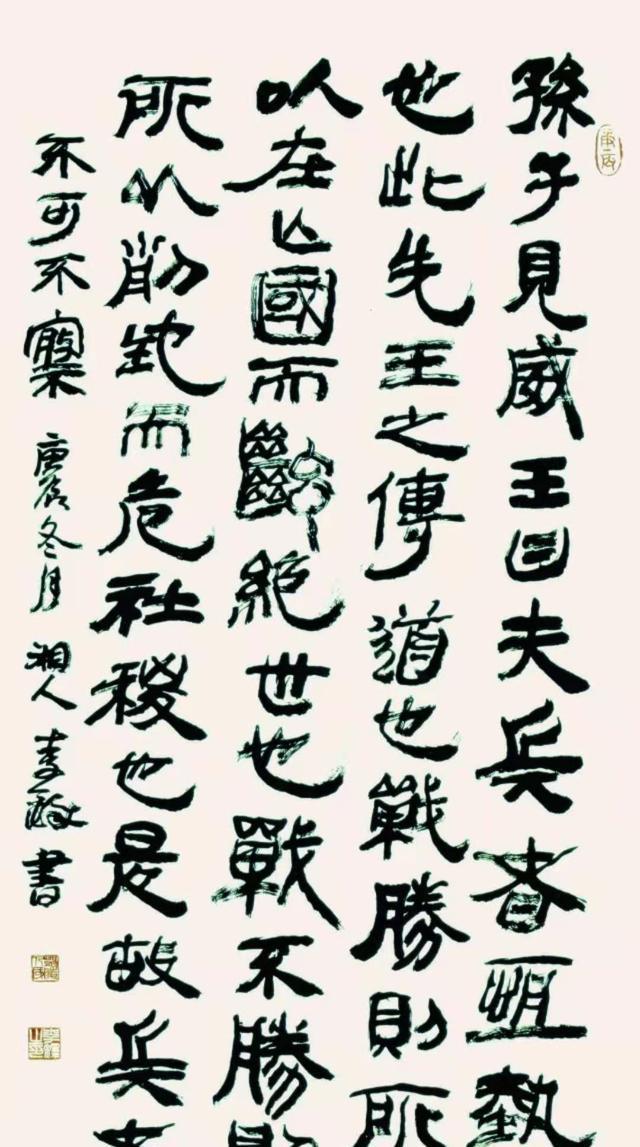 孫子見威王曰夫兵者恆埶
也此先王之傳道也戰勝則所
以在亡國而絕世也戰不勝則
所以削地而危社稷也是故兵者
不可不察 庚辰冬月 湘人李書